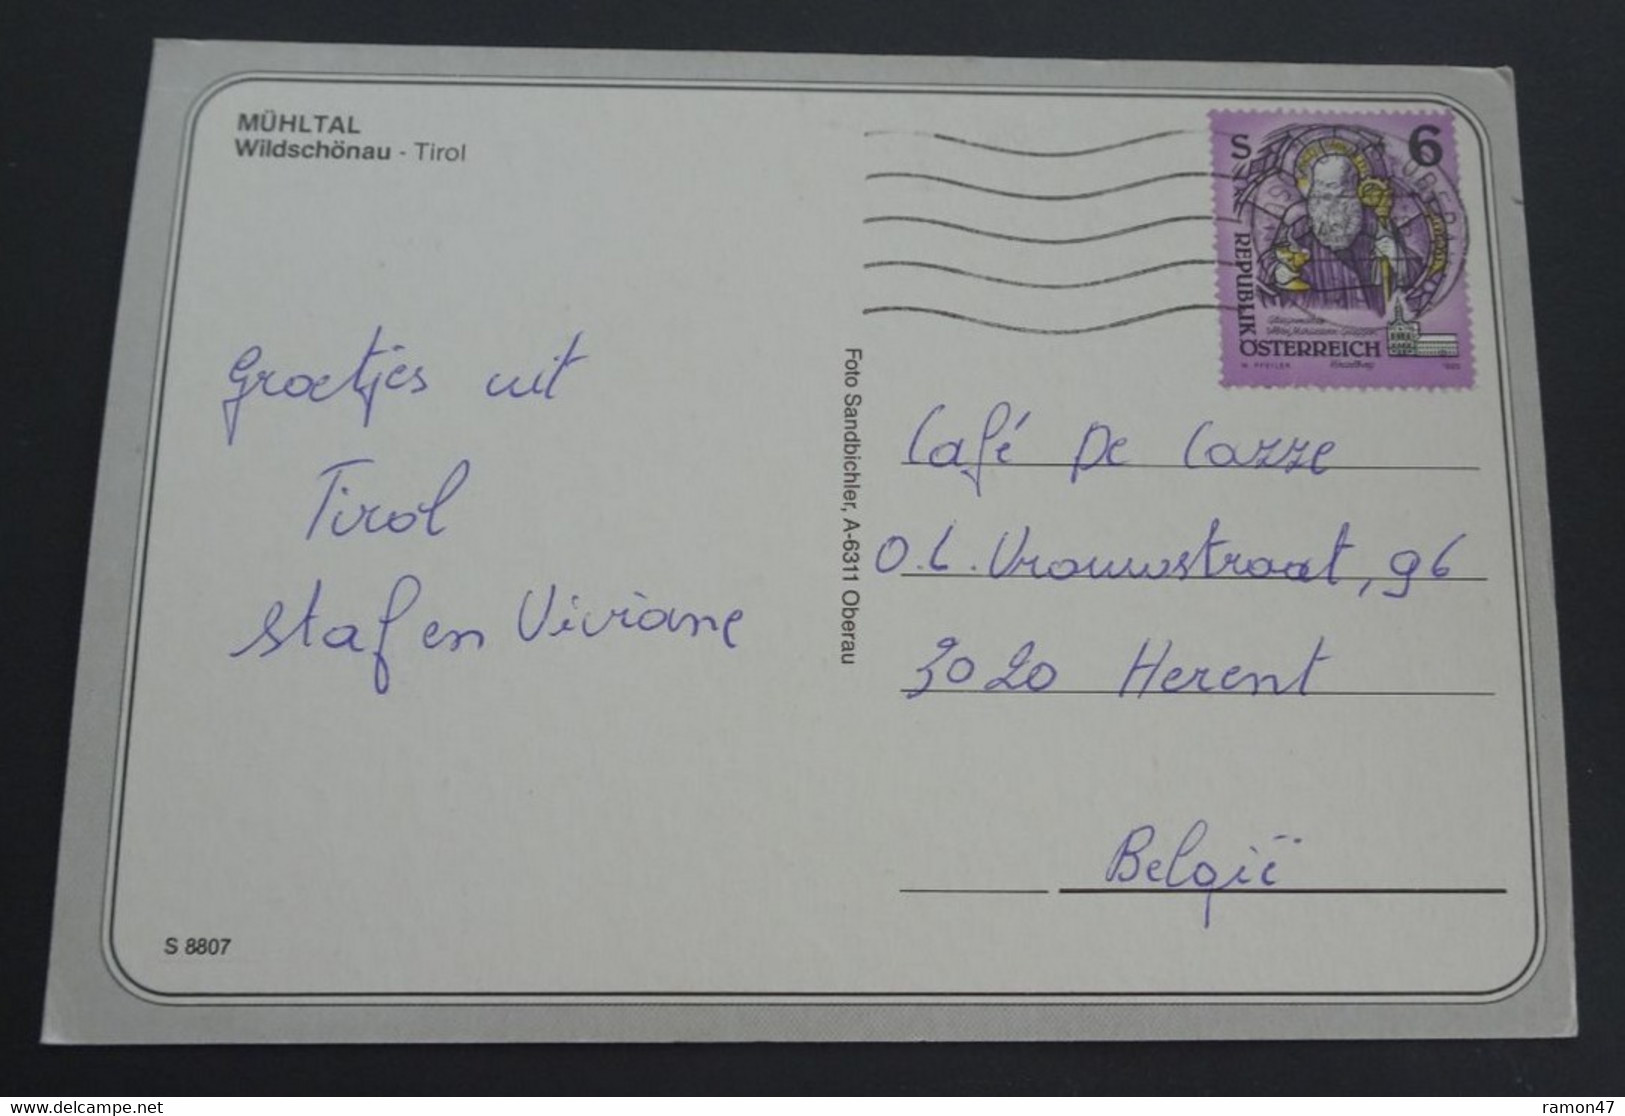 MÜHLTAL
Wildschönau - Tirol
Groetjes uit
Tirol
Staf en Viviane
S 8807
Foto Sandbichler, A-6311 Oberau
S 6
REPUBLIK
ÖSTERREICH
Café De Cazze
O.L.Vrouwstraat, 96
3020 Herent
België
delcampe.net
ramon47